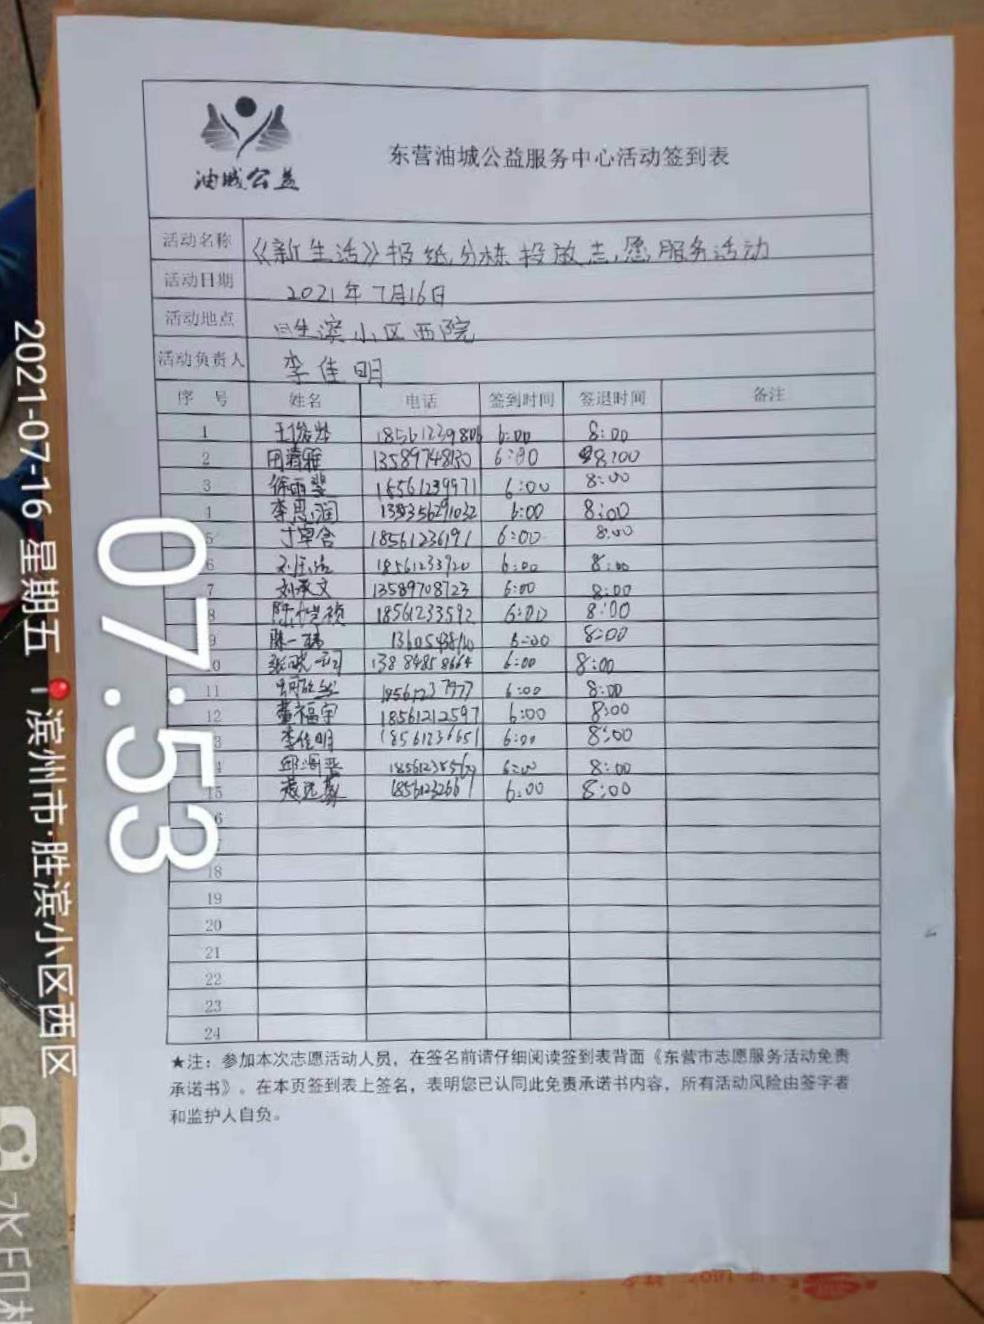 油城公益
东营油城公益服务中心活动签到表
活动名称 《新生活》报纸分拣投放志愿服务活动
活动日期 2021年7月16日
活动地点 胜滨小区西院
活动负责人 李佳明
序号 姓名 电话 签到时间 签退时间 备注
1 6:00 8:00
2 田清雅 13589748130 6:00 8:00
3 徐雨斐 18561239971 6:00 8:00
4 李思润 6:00 8:00
5 18561236191 6:00 8:00
6 18561233920 6:00 8:00
7 刘承文 13589708723 6:00 8:00
8 18561233592 6:00 8:00
9 陈一 6:00 8:00
10 6:00 8:00
11 18561237977 6:00 8:00
12 董福宇 18561212597 6:00 8:00
13 李佳明 18561236651 6:00 8:00
14 6:00 8:00
15 6:00 8:00
16
17
18
19
20
21
22
23
24
★注：参加本次志愿活动人员，在签名前请仔细阅读签到表背面《东营市志愿服务活动免责
承诺书》。在本页签到表上签名，表明您已认同此免责承诺书内容，所有活动风险由签字者
和监护人自负。
07:53
2021-07-16 星期五
滨州市·胜滨小区西区
水印相